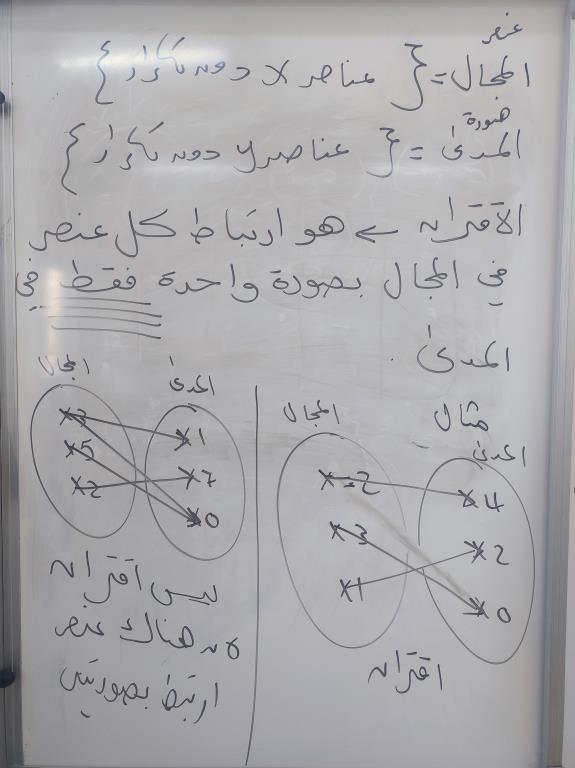 عنصر
المجال = { عناصر لا دون تكرار }
صورة
المدى = { عناصر لا دون تكرار }
الاقتران ← هو ارتباط كل عنصر
في المجال بصورة واحدة فقط في
المدى .
مثال
المجال المدى
-2 4
3 2
1 0
اقتران
المجال المدى
3 1
5 7
2 0
ليس اقتران
لان هناك عنصر
ارتبط بصورتين